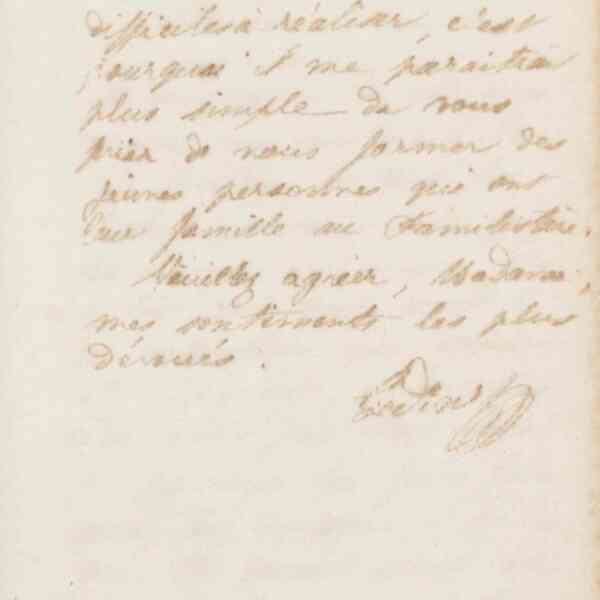 difficiles à réaliser, c'est
pourquoi il me paraitrait
plus simple de vous
prier de nous former des
jeunes personnes qui ont
leur famille au Familistère.
Veuillez agréer, Madame,
mes sentiments les plus
dévoués.
Godin